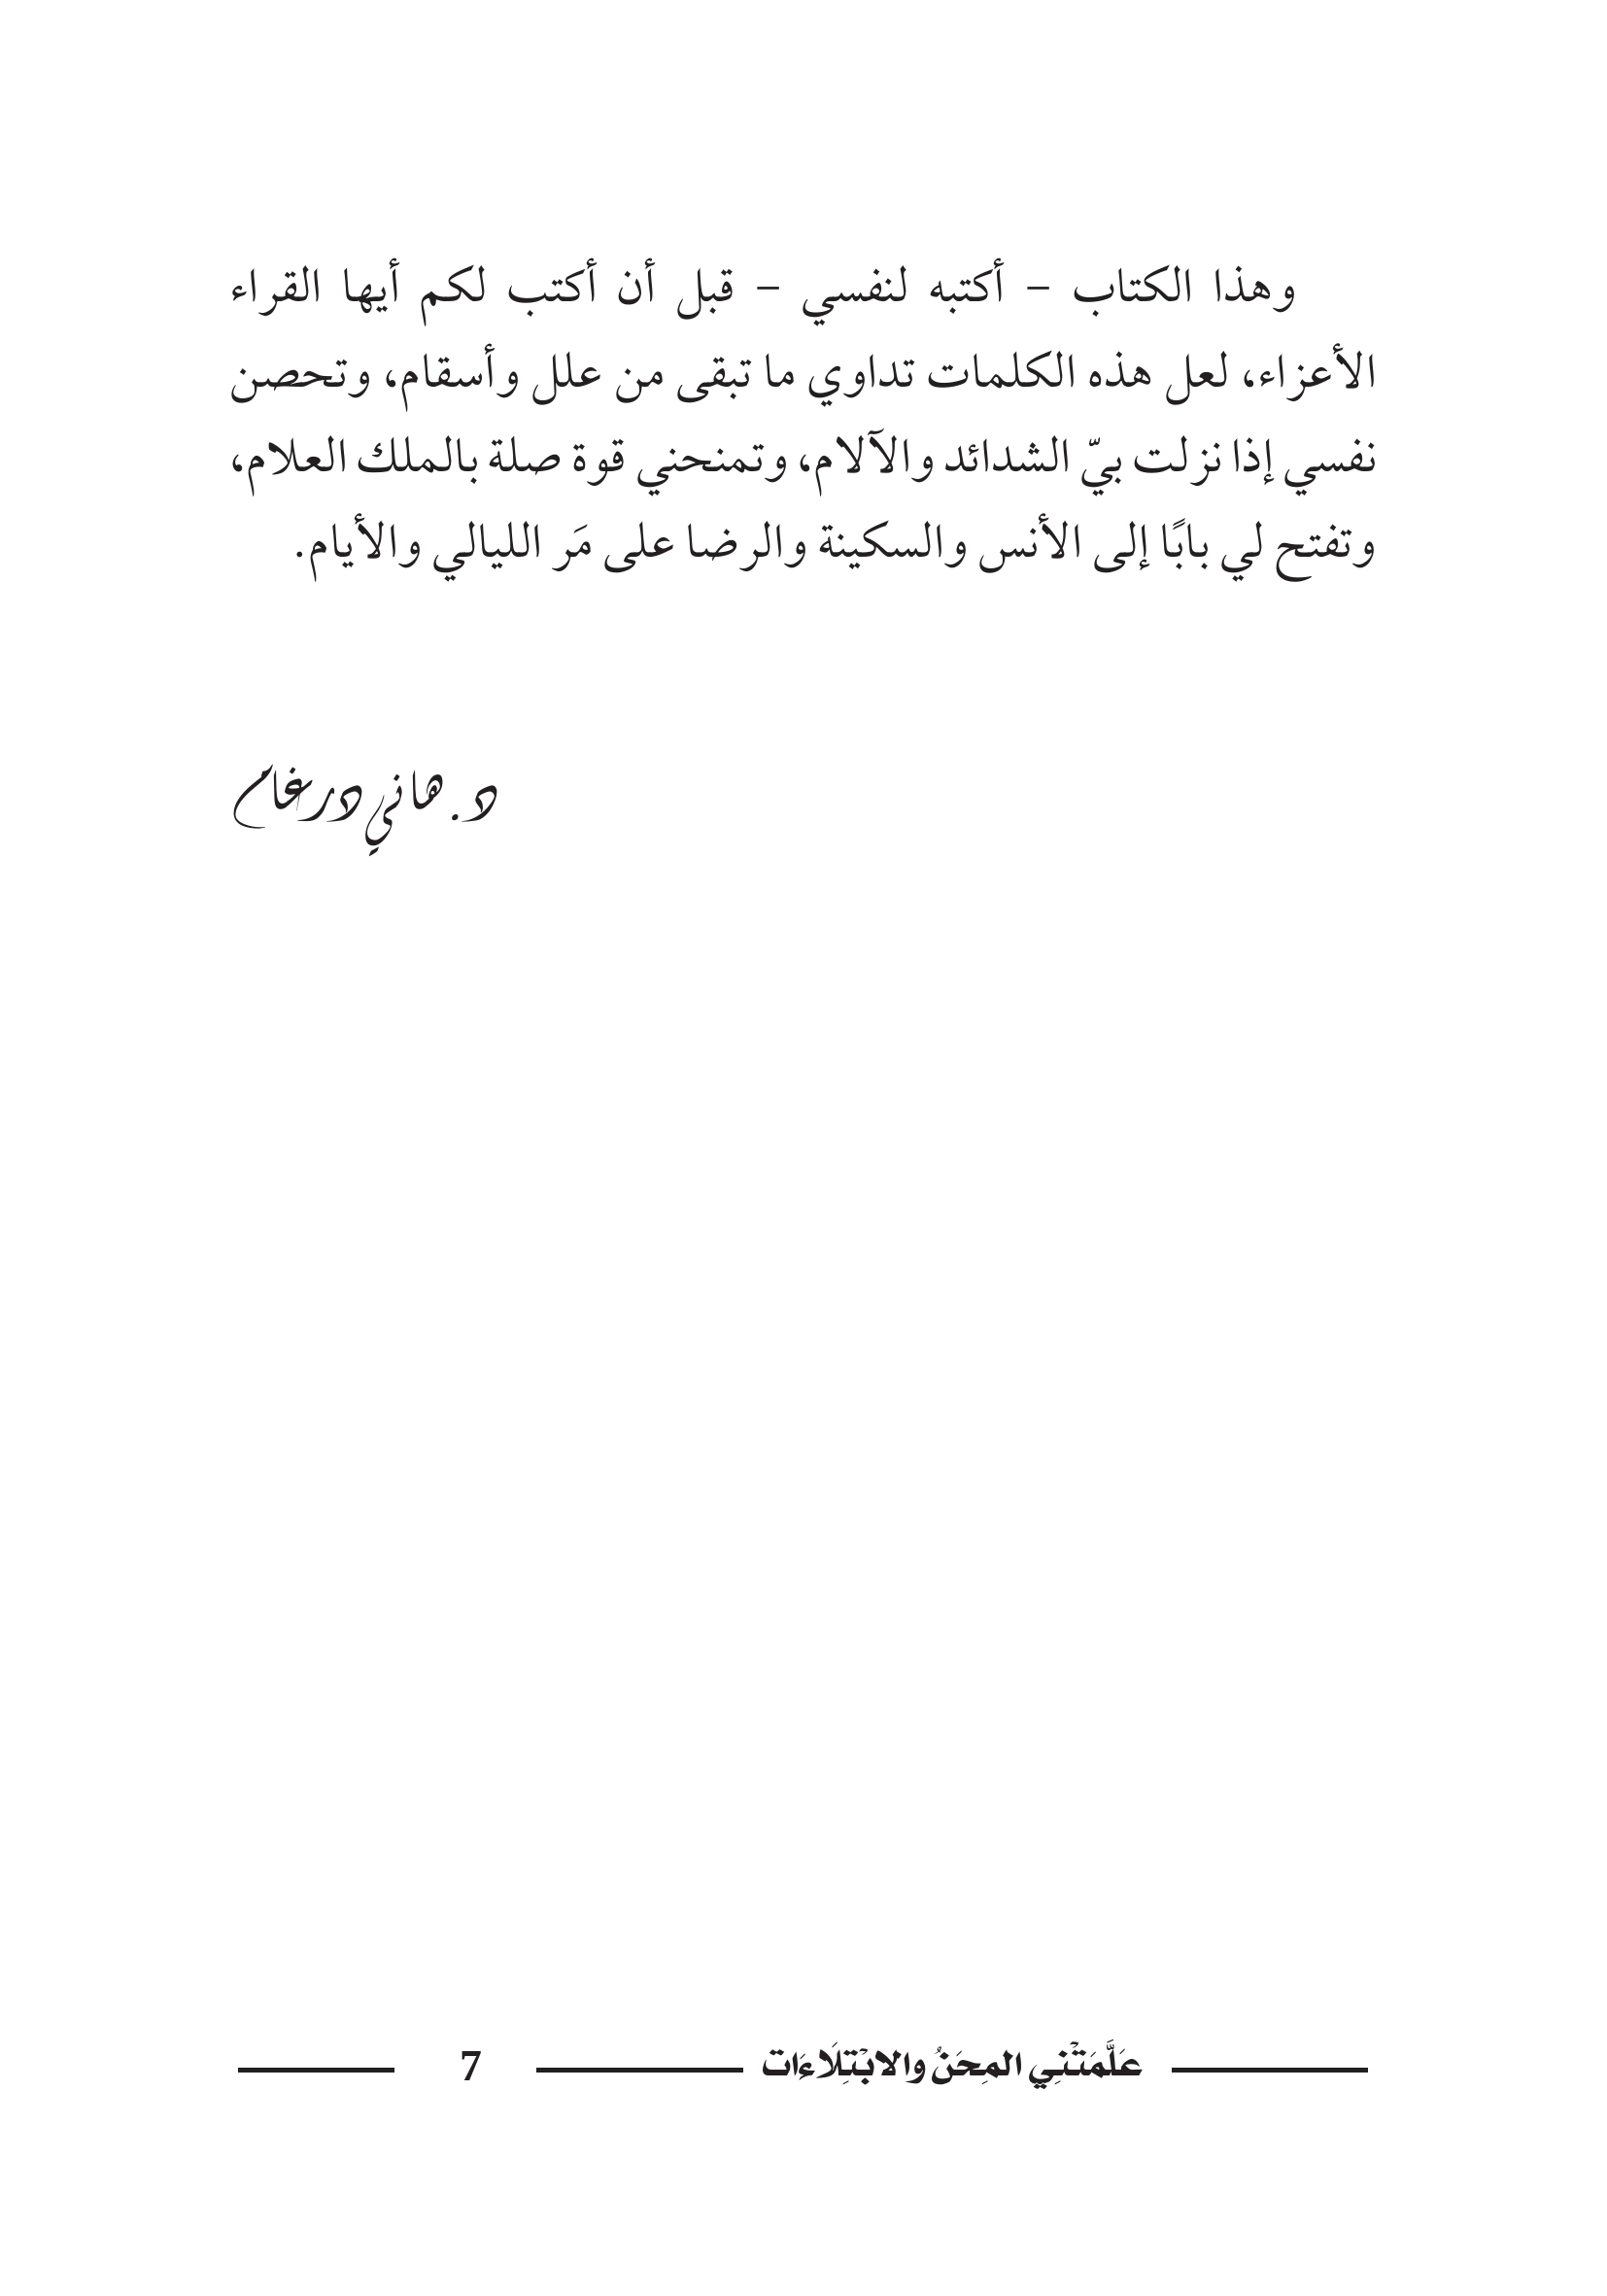 وهذا الكتاب – أكتبه لنفسي – قبل أن أكتب لكم أيها القراء
الأعزاء، لعل هذه الكلمات تداوي ما تبقى من علل وأسقام، وتحصن
نفسي إذا نزلت بيّ الشدائد والآلام، وتمنحني قوة صلة بالملك العلام،
وتفتح لي بابًا إلى الأنس والسكينة والرضا على مَر الليالي والأيام.
د. هاني درغام
عَلَّمَتْنِي المِحَنُ والابْتِلَاءَات 7